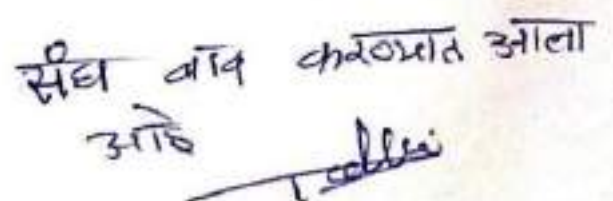 संघ बाद करण्यात आला
आहे